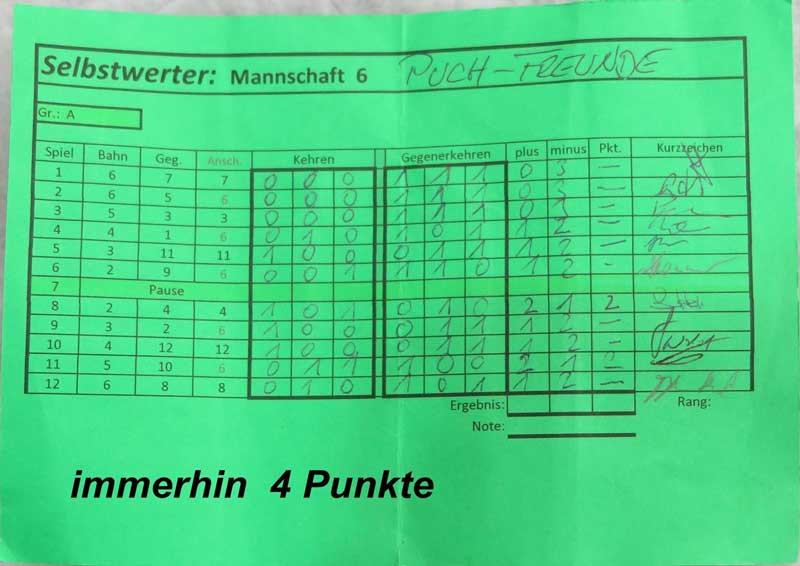 Selbstwerter: Mannschaft 6 PUCH-FREUNDE
Gr.: A
Spiel Bahn Geg. Ansch. Kehren Gegenerkehren plus minus Pkt. Kurzzeichen
1 6 7 7 0 0 0 1 1 1 0 3 —
2 6 5 6 0 0 0 1 1 1 0 3 —
3 5 3 3 0 0 0 1 1 1 0 —
4 4 1 6 0 1 0 1 0 1 1 2 —
5 3 11 11 1 0 0 0 1 1 1 2 —
6 2 9 6 0 0 1 1 1 0 1 2 -
7 Pause
8 2 4 4 1 0 1 0 1 0 2 1 2
9 3 2 6 1 0 0 0 1 1 1 2 —
10 4 12 12 1 0 0 0 1 1 1 2 —
11 5 10 6 0 1 1 1 0 0 2 1
12 6 8 8 0 1 0 1 0 1 1 2 —
Ergebnis: Rang:
Note:
immerhin 4 Punkte